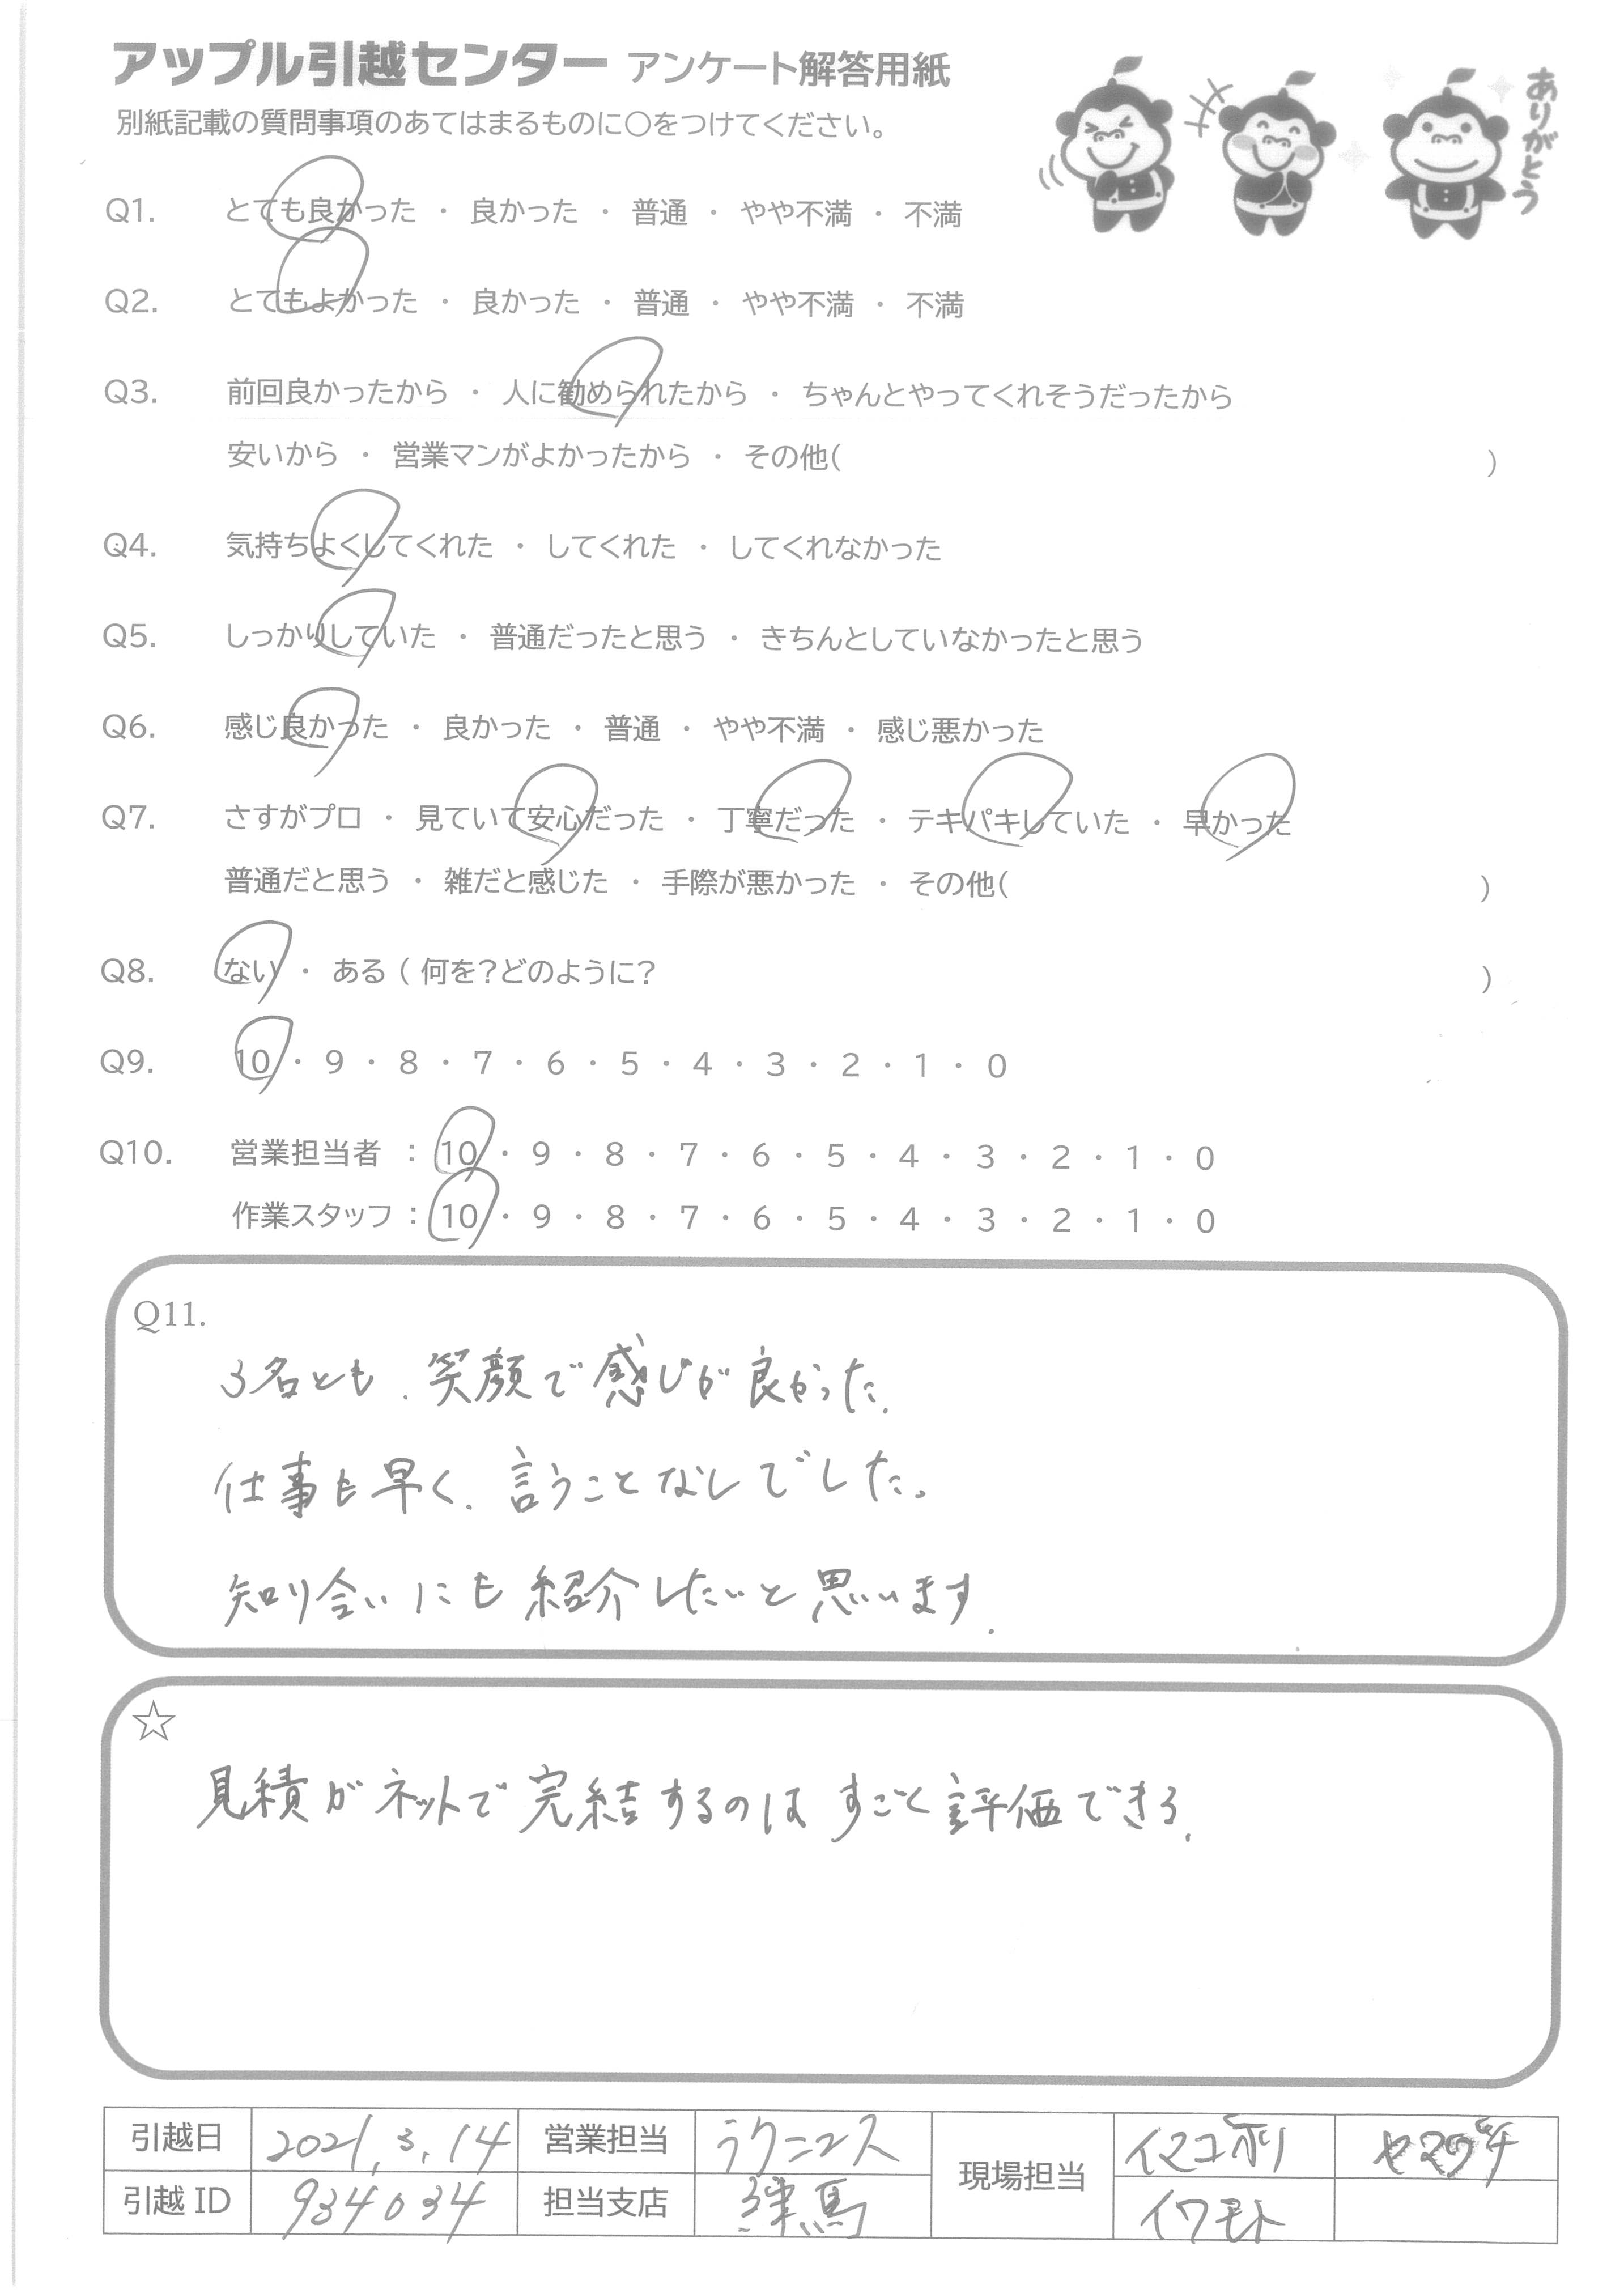 アップル引越センター アンケート解答用紙
別紙記載の質問事項のあてはまるものに○をつけてください。
ありがとう
Q1. とても良かった ・ 良かった ・ 普通 ・ やや不満 ・ 不満
Q2. とてもよかった ・ 良かった ・ 普通 ・ やや不満 ・ 不満
Q3. 前回良かったから ・ 人に勧められたから ・ ちゃんとやってくれそうだったから
安いから ・ 営業マンがよかったから ・ その他( )
Q4. 気持ちよくしてくれた ・ してくれた ・ してくれなかった
Q5. しっかりしていた ・ 普通だったと思う ・ きちんとしていなかったと思う
Q6. 感じ良かった ・ 良かった ・ 普通 ・ やや不満 ・ 感じ悪かった
Q7. さすがプロ ・ 見ていて安心だった ・ 丁寧だった ・ テキパキしていた ・ 早かった
普通だと思う ・ 雑だと感じた ・ 手際が悪かった ・ その他( )
Q8. ない ・ ある ( 何を?どのように? )
Q9. 10 ・ 9 ・ 8 ・ 7 ・ 6 ・ 5 ・ 4 ・ 3 ・ 2 ・ 1 ・ 0
Q10. 営業担当者 : 10 ・ 9 ・ 8 ・ 7 ・ 6 ・ 5 ・ 4 ・ 3 ・ 2 ・ 1 ・ 0
作業スタッフ : 10 ・ 9 ・ 8 ・ 7 ・ 6 ・ 5 ・ 4 ・ 3 ・ 2 ・ 1 ・ 0
Q11.
3名とも、笑顔で感じが良かった.
仕事も早く、言うことなしでした。
知り合いにも紹介したいと思います.
☆
見積がネットで完結するのはすごく評価できる.
引越日 2021.3.14 営業担当 ラクニコス 現場担当 イマコオリ
引越 ID 934034 担当支店 練馬 イワモト